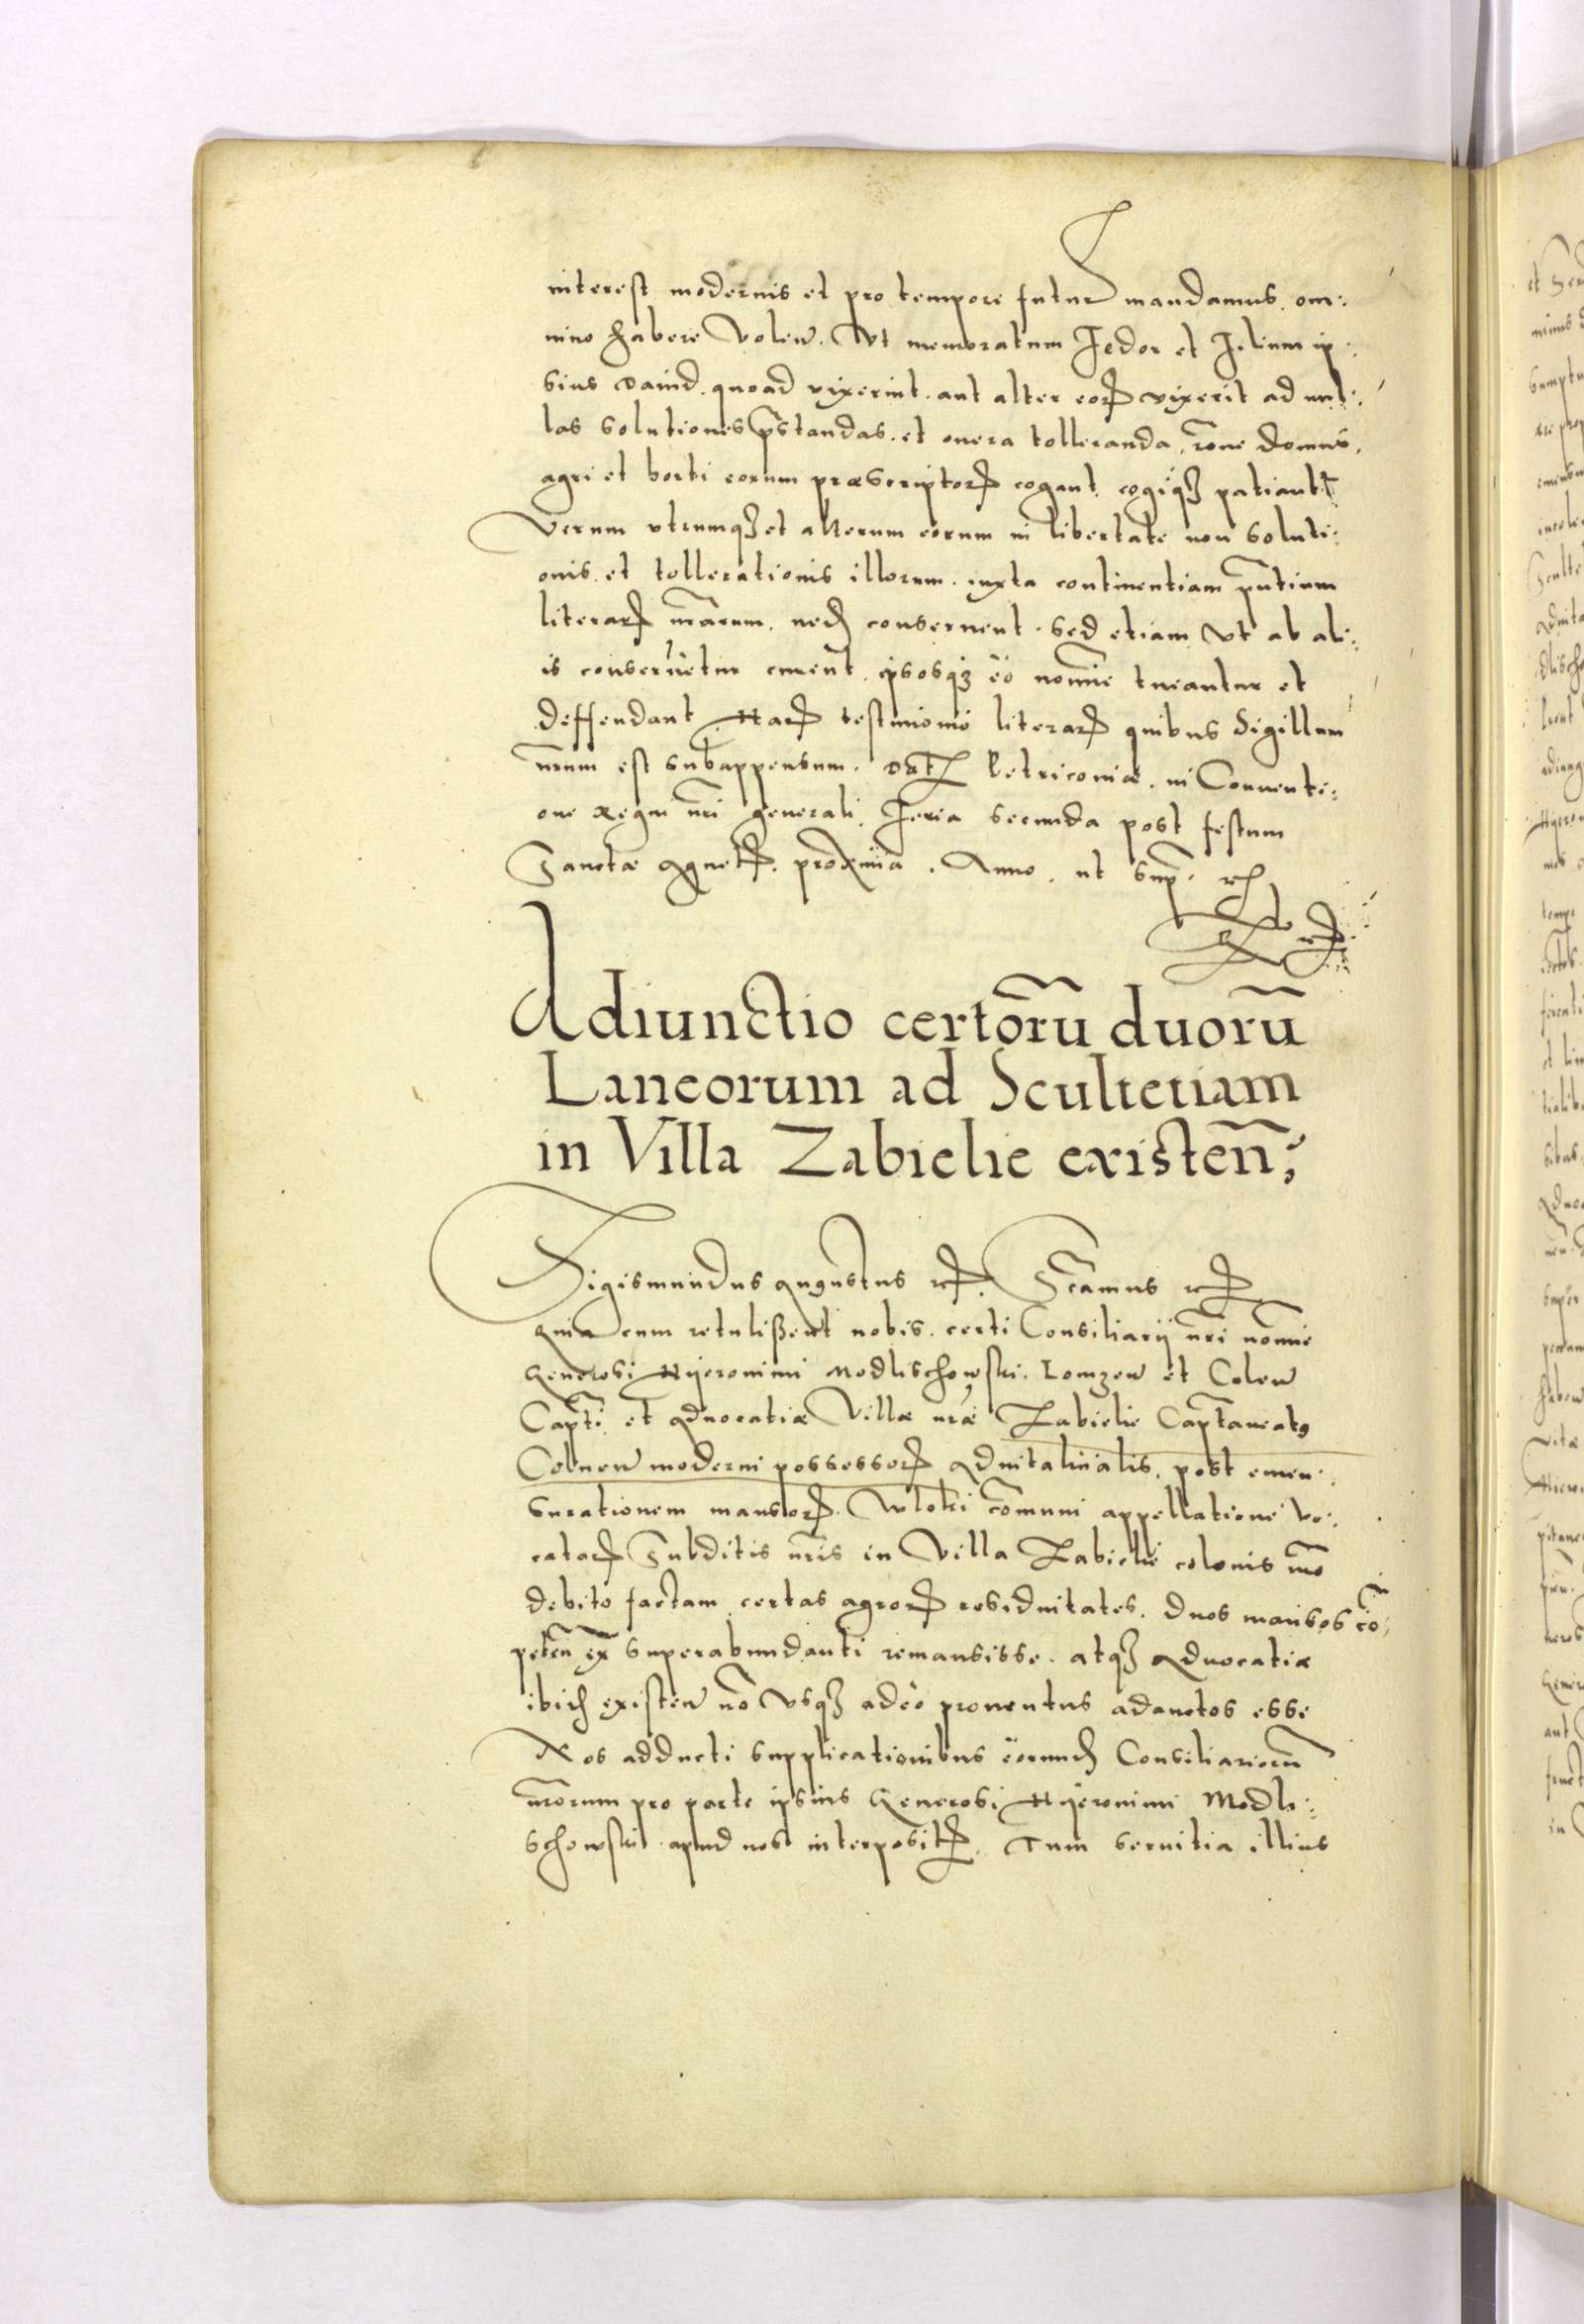 interest modernis et pro tempore futur mandamus. om:
nino habere volen. Ut memoratum Fedor et filium ip:
sius David. quoad vixerint. aut alter eorꝝ vixerit ad nul:
las solutiones p̄standas. et onera tolleranda. rōne domus.
agri et horti eorum præscriptorꝝ cogant. cogiqꝫ patiantr
Verum utrumqꝫ et alterum eorum in libertate non soluti:
onis. et tollerationis illorum. iuxta continentiam p̄ntium
literarꝝ nr̄arum. ned consernent. sed etiam ut ab ali:
is conservetur curent. ipsosqꝫ eo nomīe tueantur et
deffendant Harꝝ testimonio literarꝝ quibus Sigillum
nr̄um est subappensum. Dat Petricoviæ. in Conventi:
one Regni nr̄i generali. Feria secunda post festum
Sanctæ Agnetꝝ. proxima. Anno. ut sup.
Adiunctio certorū duorū
Laneorum ad Scultetiam
in Villa Zabielie existen̄;
Sigismundus Augustus rꝝ. Sc̄amus rꝝ
Quia cum retulissent nobis. certi Consiliarij nr̄i nomīe
Generosi Hyeronimi Modlischowski. Lomzen et Colen
Capt̄i. et Advocatiæ Villæ nr̄æ Zabielie Capt̄aneatꝯ
Colnen moderni possessorꝝ Advitalicialis. post emen:
surationem mansorꝝ. Wloki cōmuni appellatione vo:
catorꝝ Subditis nr̄is in Villa Zabielie colonis mō
debito factam certas agrorꝝ residuitates. duos mansos cō:
peten̄ ex superabundanti remansisse. atqꝫ Advocatiæ
ibid existen nō usqꝫ adeo proventus adauctos esse
Nos adducti supplicationibus eorund Consiliariorū
nr̄orum pro parte ipsius Generosi Hyeronimi Modli:
schowski apud nos interpositꝝ. Tum servitia illius